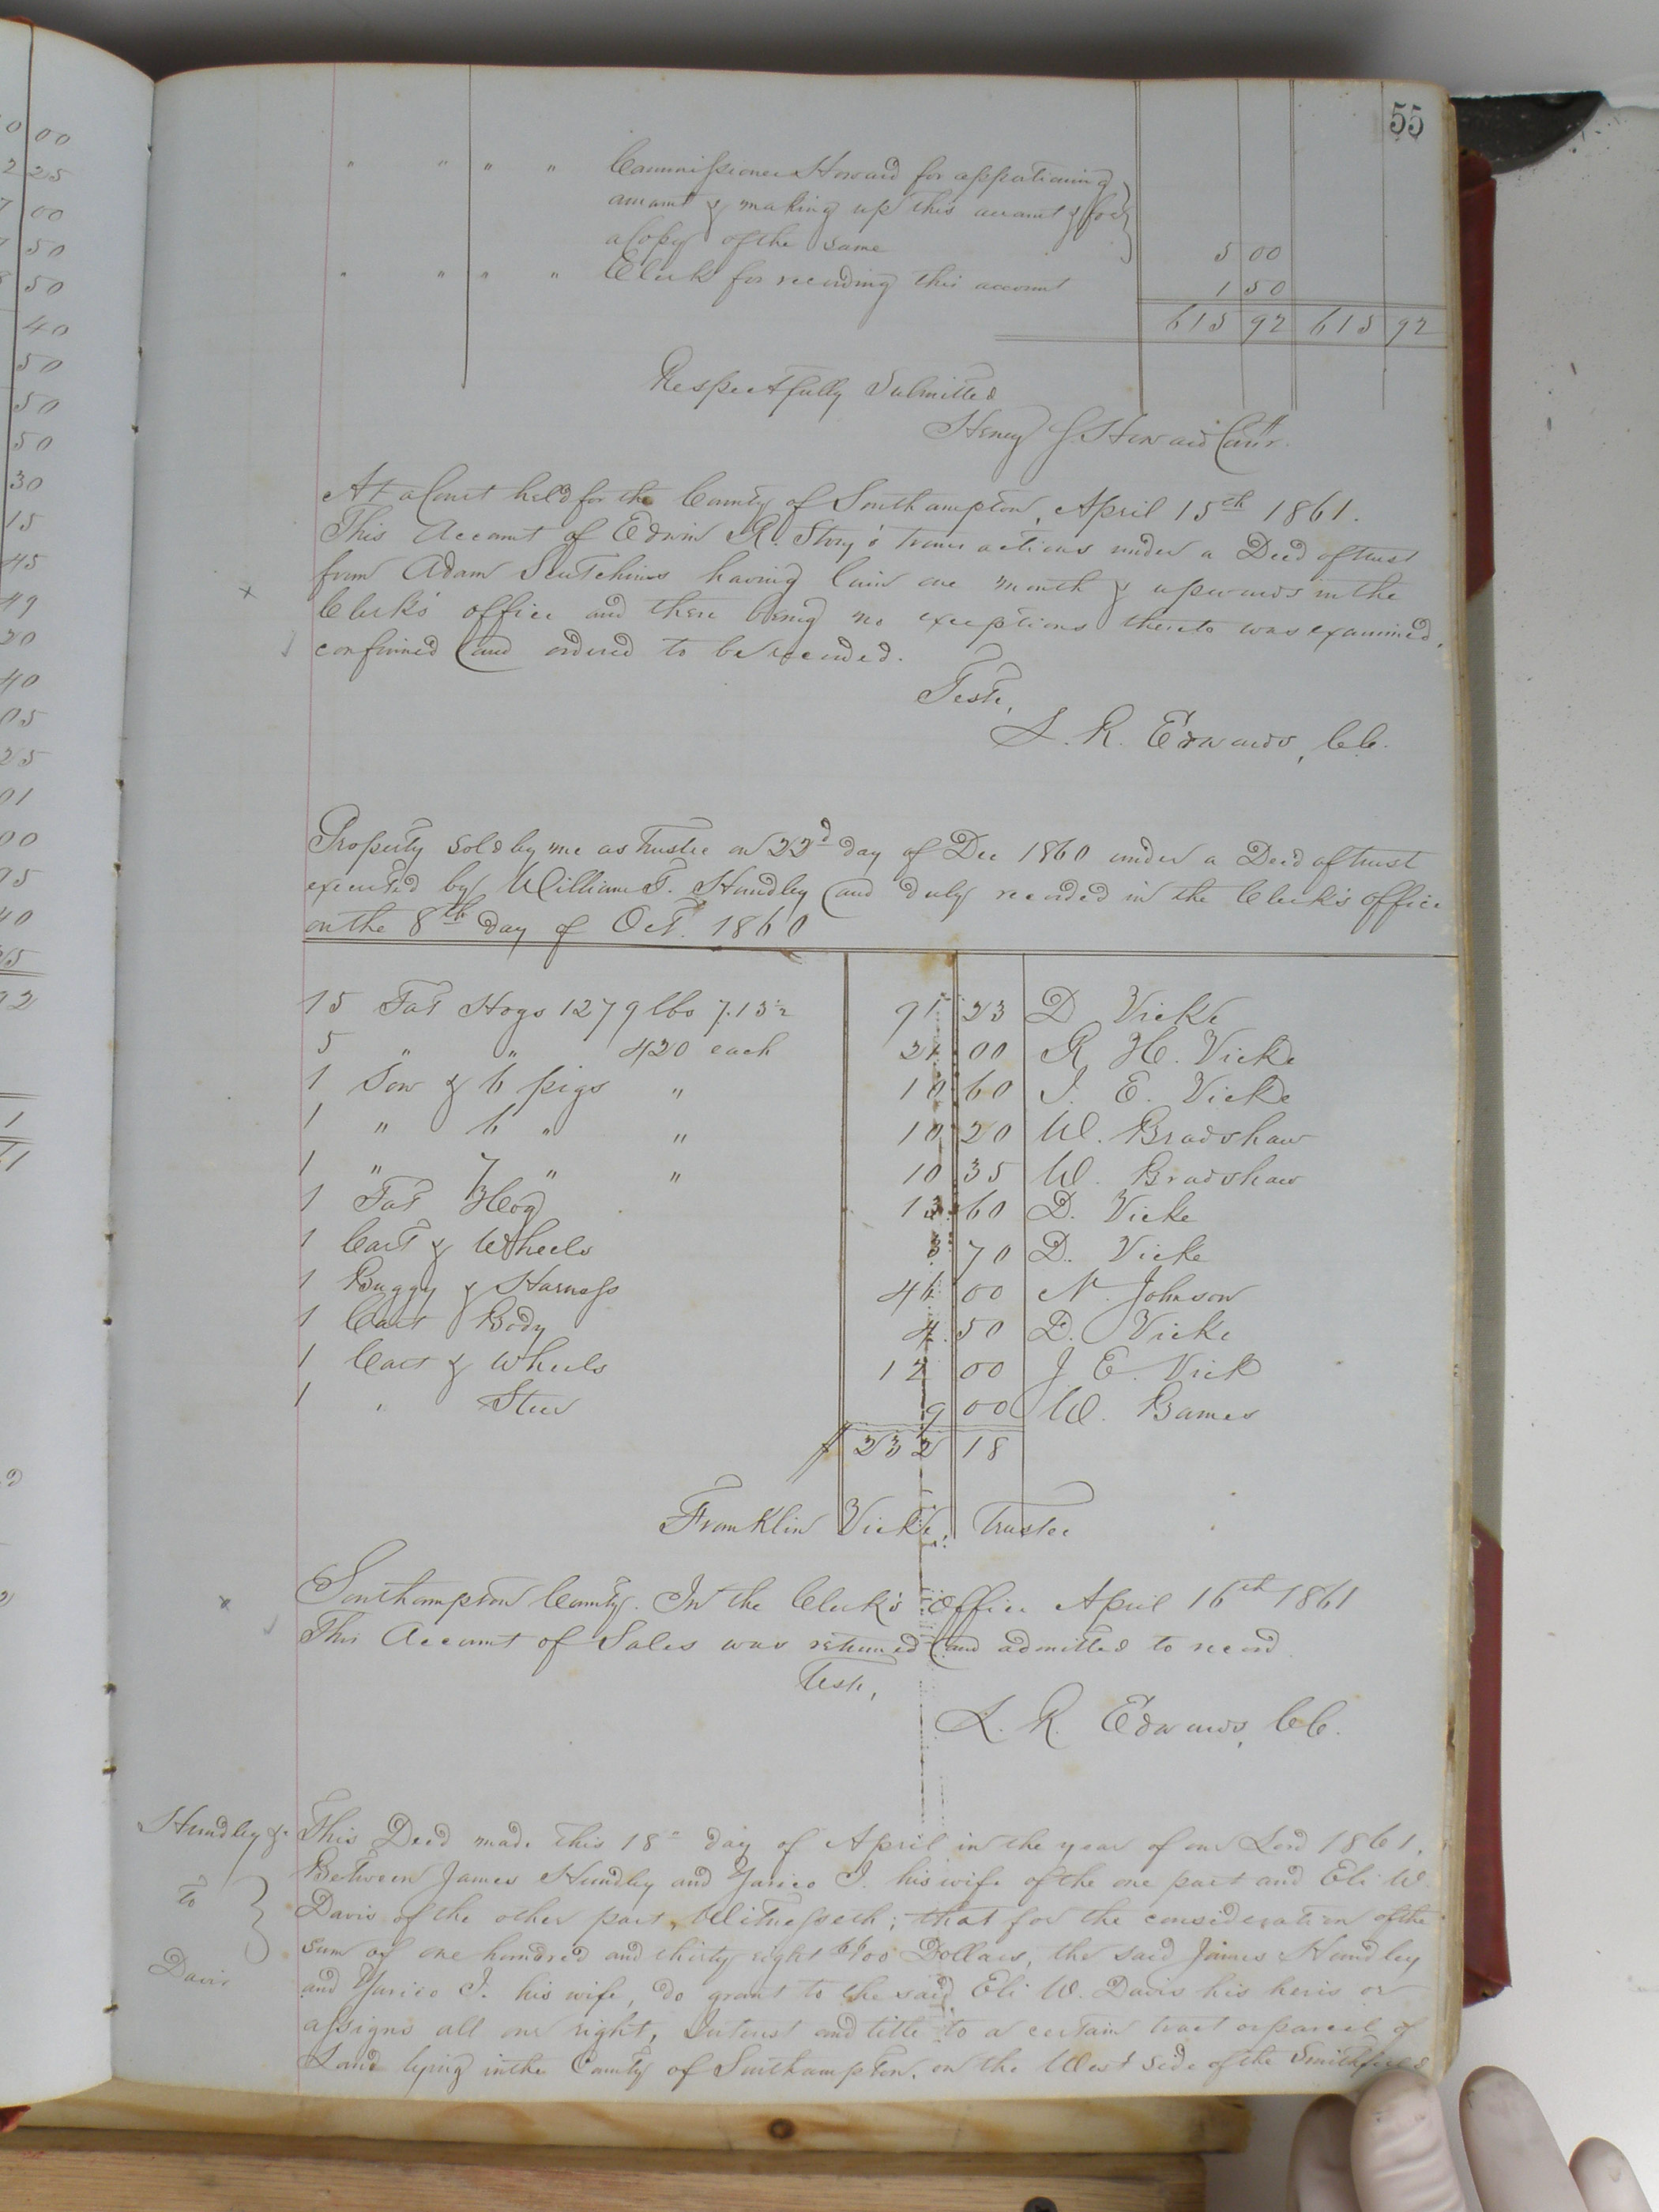 55
" " " " Commissioner Howard for apportioning
amount & making up this account & for
a Copy of the same 5 00
" " " " Clerk for recording this account 1 50
615 92 615 92
Respectfully Submitted
Henry J Howard Comr.
At a Court held for the County of Southampton, April 15th 1861.
This Account of Edwin R. Story's transactions under a Deed of trust
from Adam Scutchins having lain one month & upwards in the
Clerk's office and there being no exceptions thereto was examined,
confirmed and ordered to be recorded.
Teste,
L. R. Edwards, CC.
Property sold by me as trustee on 22d day of Dec 1860 under a Deed of trust
executed by William T. Hundley and duly recorded in the Clerk's office
on the 8th day of Oct. 1860
15 Fat Hogs 1279 lbs 7.13½ 91 23 D Vicke
5 " " 420 each 21 00 R H. Vicke
1 Sow & 6 pigs " 10 60 J. E. Vicke
1 " 6 " " 10 20 W. Bradshaw
1 " 7 " " 10 35 W. Bradshaw
1 Fat Hog 13 60 D. Vicke
1 Cart & Wheels 3 70 D. Vicke
1 Buggy & Harness 46 00 N. Johnson
1 Cart Body 4 50 D. Vicke
1 Cart & Wheels 12 00 J E. Vick
1 " Steer 9 00 W. Barnes
$ 232 18
Franklin Vicke, Trustee
Southampton County. In the Clerk's Office April 16th 1861
This Account of Sales was returned and admitted to record.
Teste,
L. R. Edwards, CC.
Hundley &c
to
Davis
This Deed made this 18th day of April in the year of our Lord 1861,
Between James Hundley and Yarico J. his wife of the one part and Eli W.
Davis of the other part, Witnesseth; that for the consideration of the
sum of one hundred and thirty eight 66/00 Dollars, the said James Hundley
and Yarico J. his wife, do grant to the said Eli W. Davis his heris or
assigns all our right, Interest and title to a certain tract or parcel of
Land lying in the County of Southampton, on the West side of the Smithfield